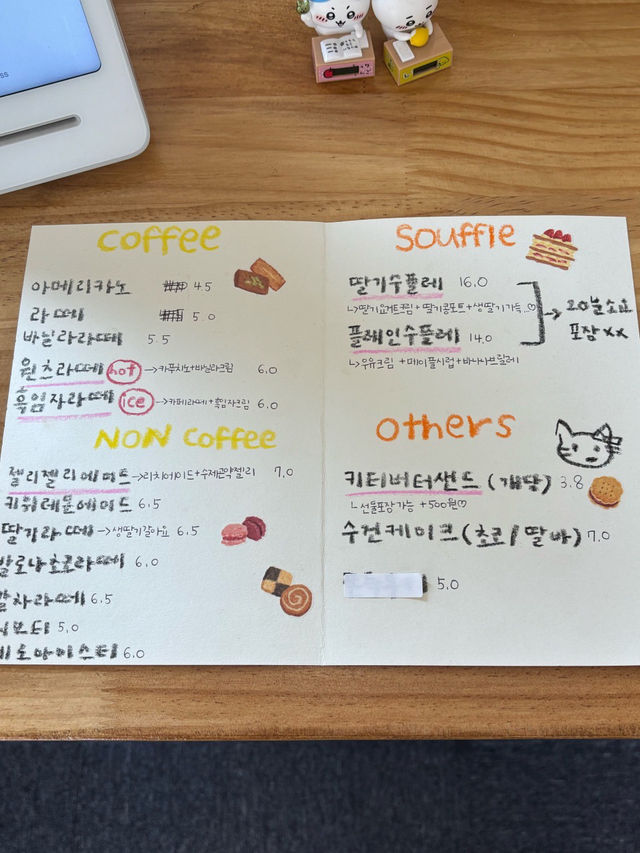 coffee
아메리카노 4.5
라떼 5.0
바닐라라떼 5.5
윈츠라떼 hot →카푸치노+바닐라크림 6.0
흑임자라떼 ice →카페라떼+흑임자크림 6.0
NON coffee
젤리젤리에이드→리치에이드+수제곤약젤리 7.0
키위레몬에이드 6.5
딸기라떼→생딸기갈아요 6.5
발로나초코라떼 6.0
말차라떼 6.5
5.0
6.0
souffle
딸기수플레 16.0
↳딸기요거트크림+딸기콩포트+생딸기가득..♡
플레인수플레 14.0
↳우유크림+메이플시럽+바나나브륄레
→20분소요
포장XX
others
키티버터샌드 (개당) 3.8
↳선물포장가능 +500원♡
수건케이크(초코/딸바) 7.0
5.0